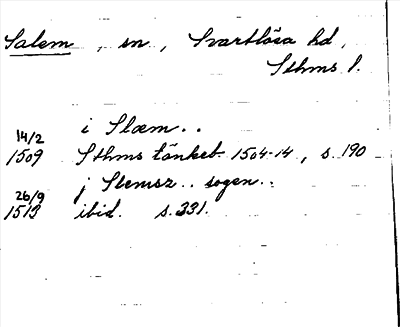 Salem, sn, Svartlösa hd,
Sthms l.
14/2 i Slæm..
1509 Sthms tänkeb. 1504-14, s. 190
26/9 j Slemsz.. sogen..
1513 ibid. s. 331.